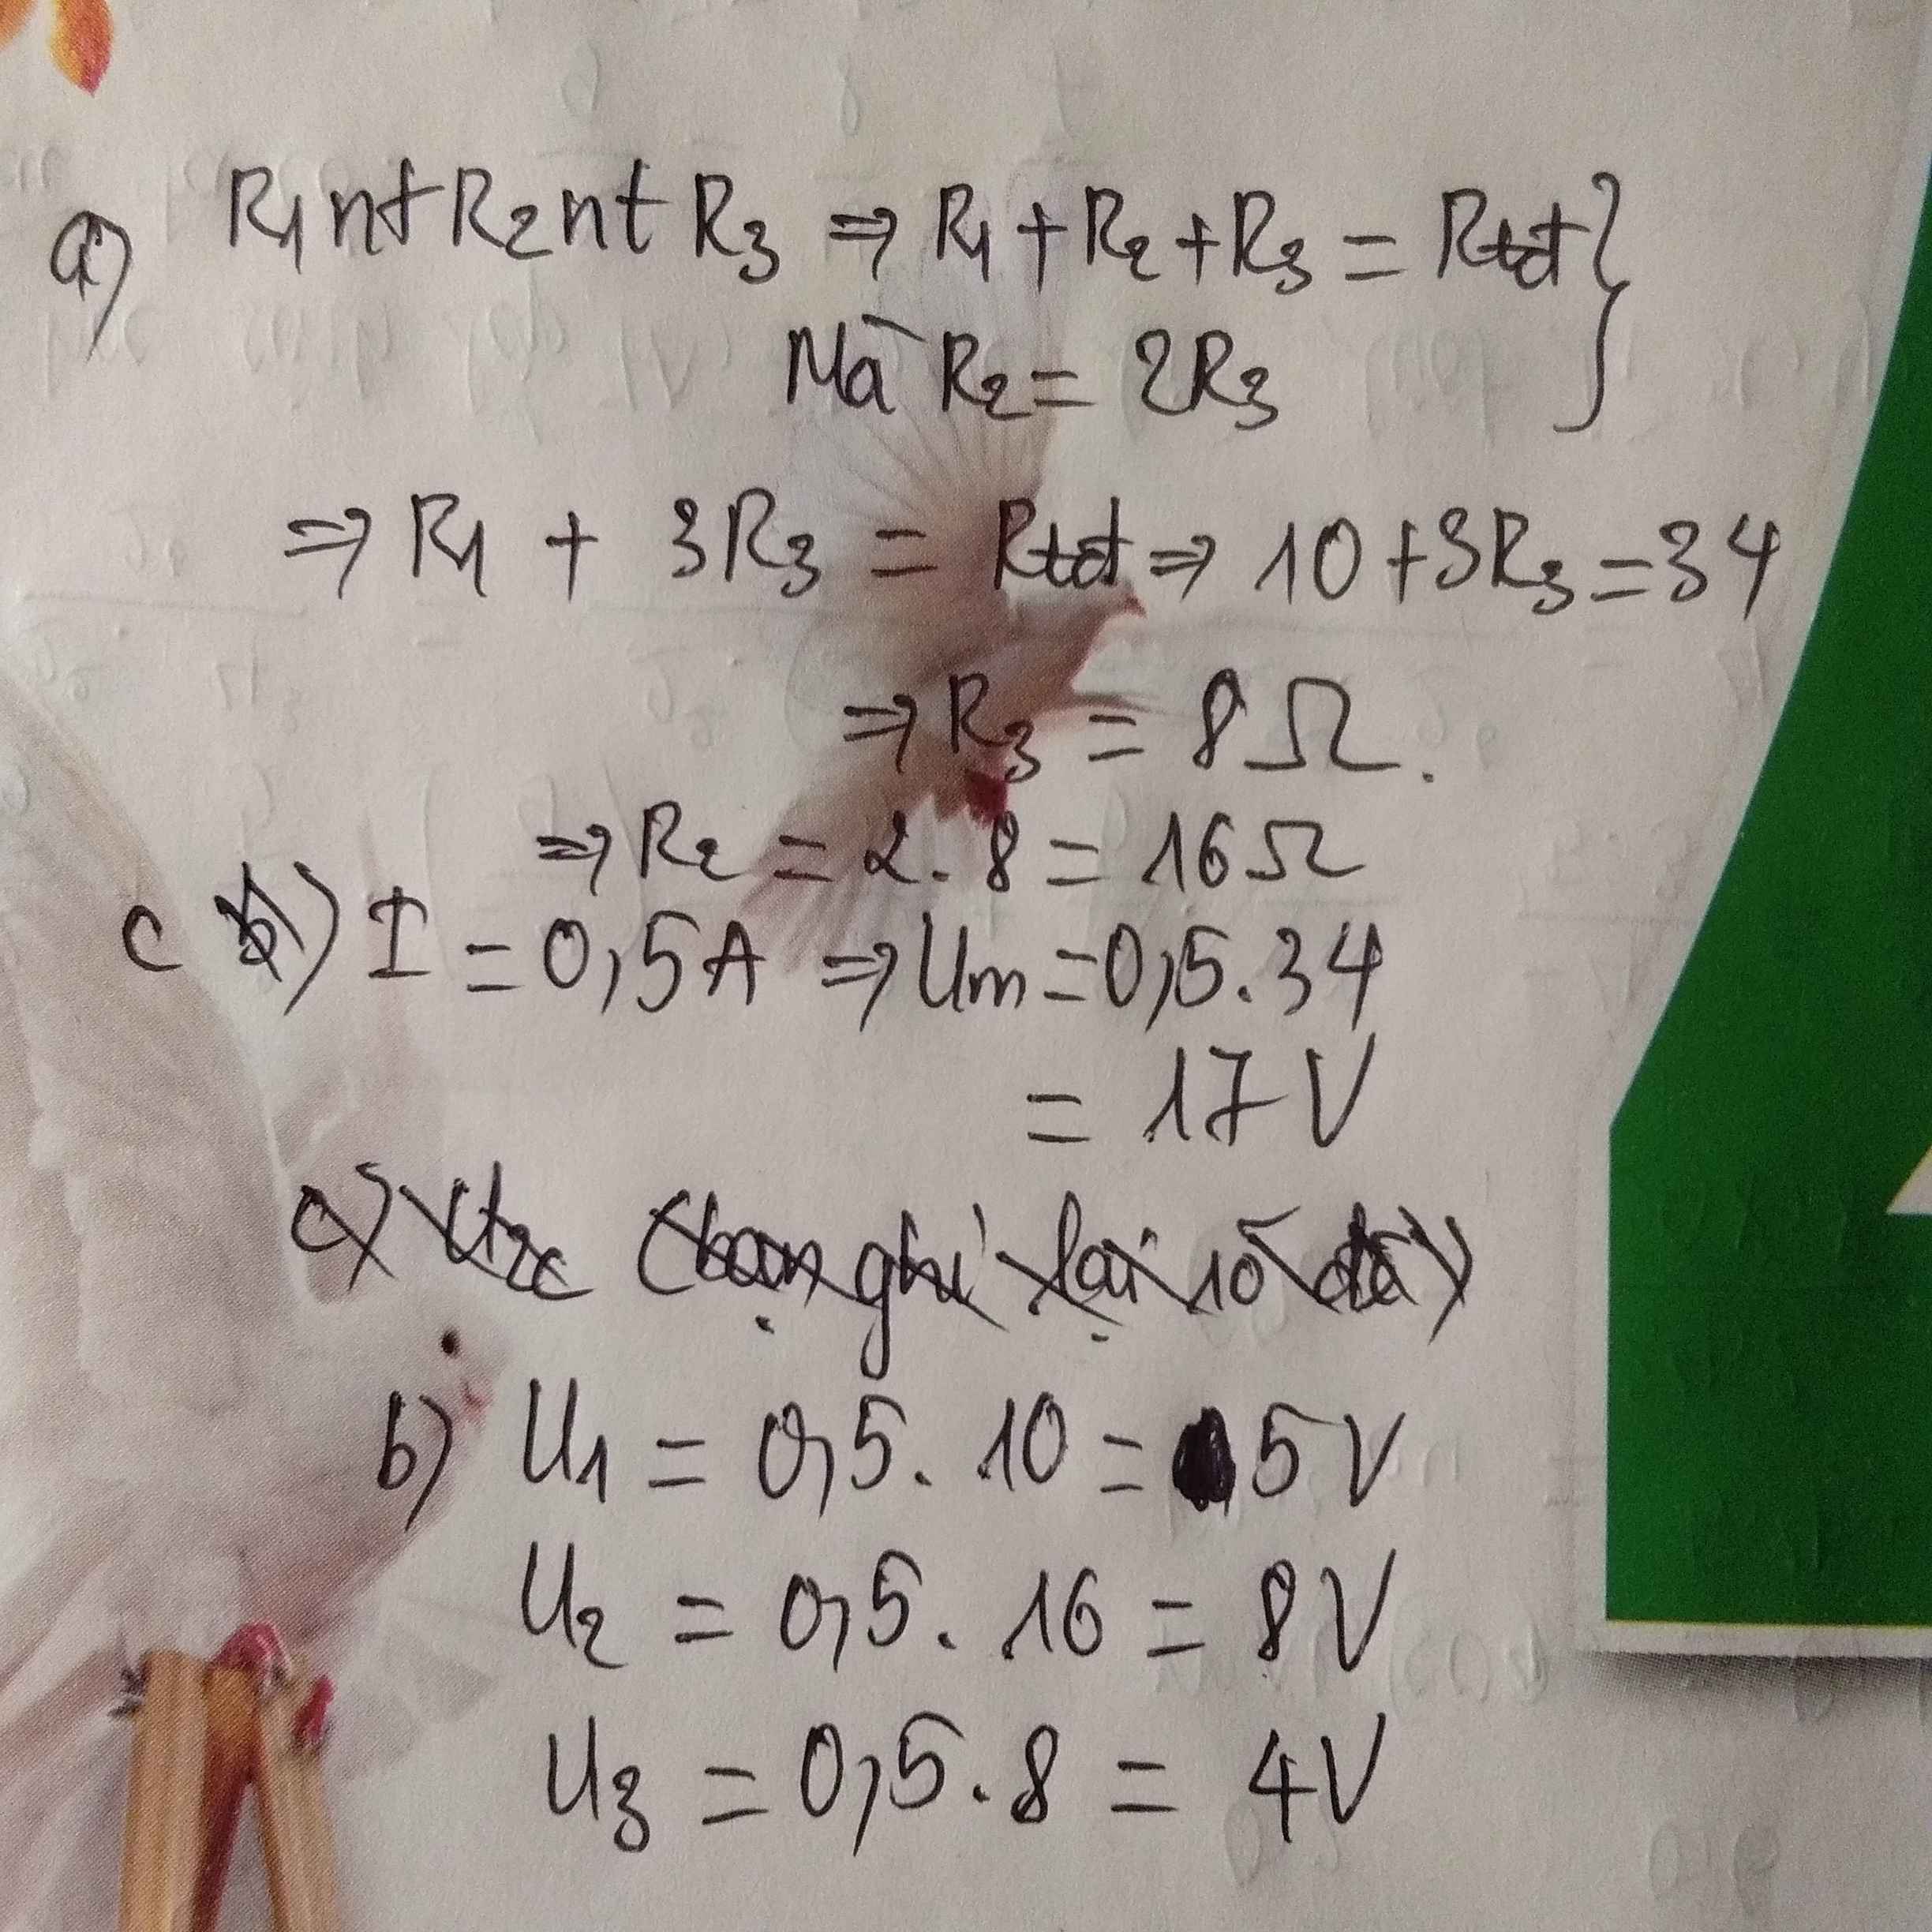 a) R₁ nt R₂ nt R₃ ⇒ R₁ + R₂ + R₃ = Rtđ }
Mà R₂ = 2R₃
⇒ R₁ + 3R₃ = Rtđ ⇒ 10 + 3R₃ = 34
⇒ R₃ = 8Ω.
⇒ R₂ = 2.8 = 16Ω
c b) I = 0,5A ⇒ Um = 0,5.34
= 17V
(bạn ghi lại rõ đề)
b) U₁ = 0,5.10 = 5V
U₂ = 0,5.16 = 8V
U₃ = 0,5.8 = 4V